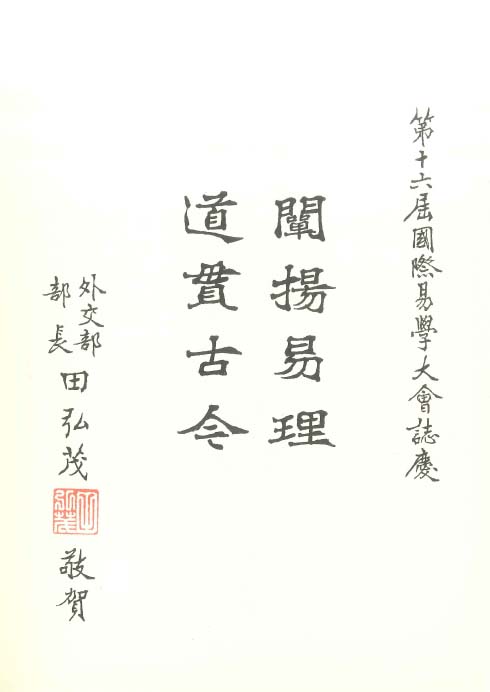 第十六屆國際易學大會誌慶
闡揚易理
道貫古今
外交部
部長
田弘茂
敬賀